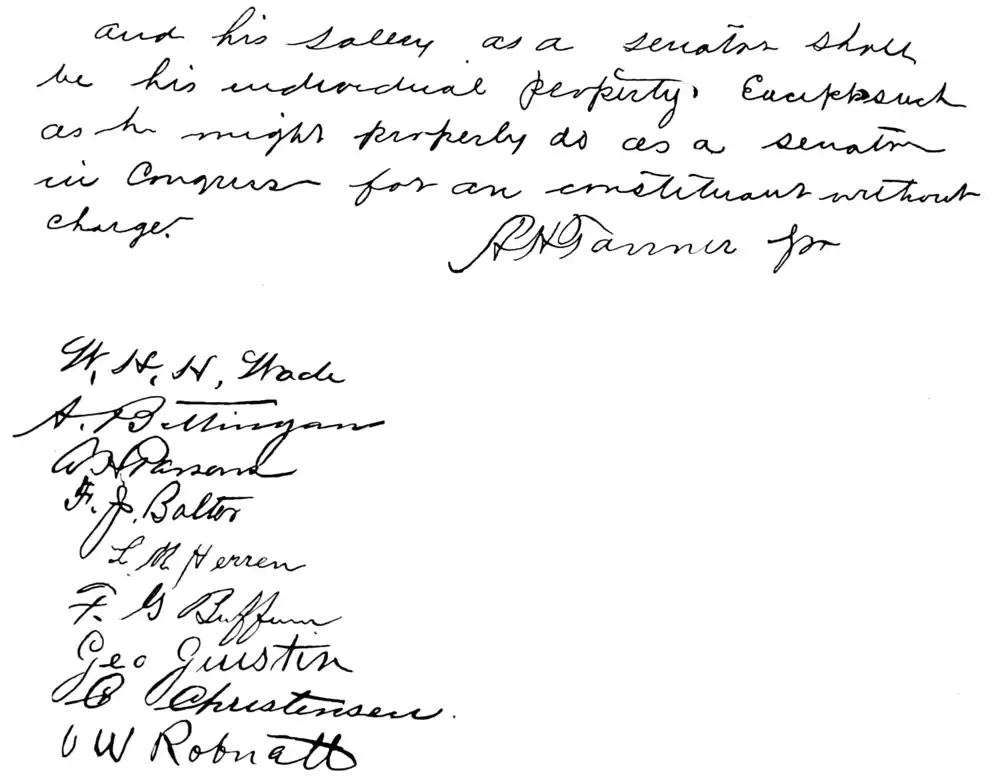 and his sallery as a senator shall
be his individual property. Except such
as he might properly do as a senator
in Congress for an constituant without
charge.
A H Tanner
W. H. H. Wade
A.
W H Parsons
F. J. Balter
L M Herren
F. G Buffum
Geo Giustin
C Christensen.
W Robnett